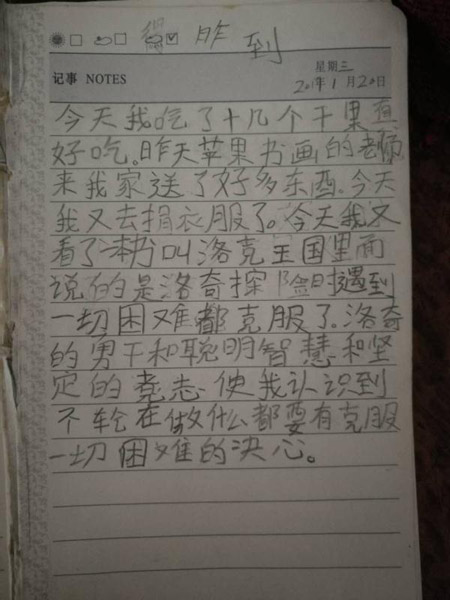 得昨到
星期三
记事 NOTES
2017年1月20日
今天我吃了十几个干果有
好吃。昨天苹果书画的老师
来我家送了好多东西.今天
我又去捐衣服了。今天我又
看了一本书叫洛克王国里面
说的是洛奇探险时遇到
一切困难都克服了。洛奇
的勇干和聪明智慧.和坚
定的意志.使我认识到
不轮在做什么都要有克服
一切困难的决心。